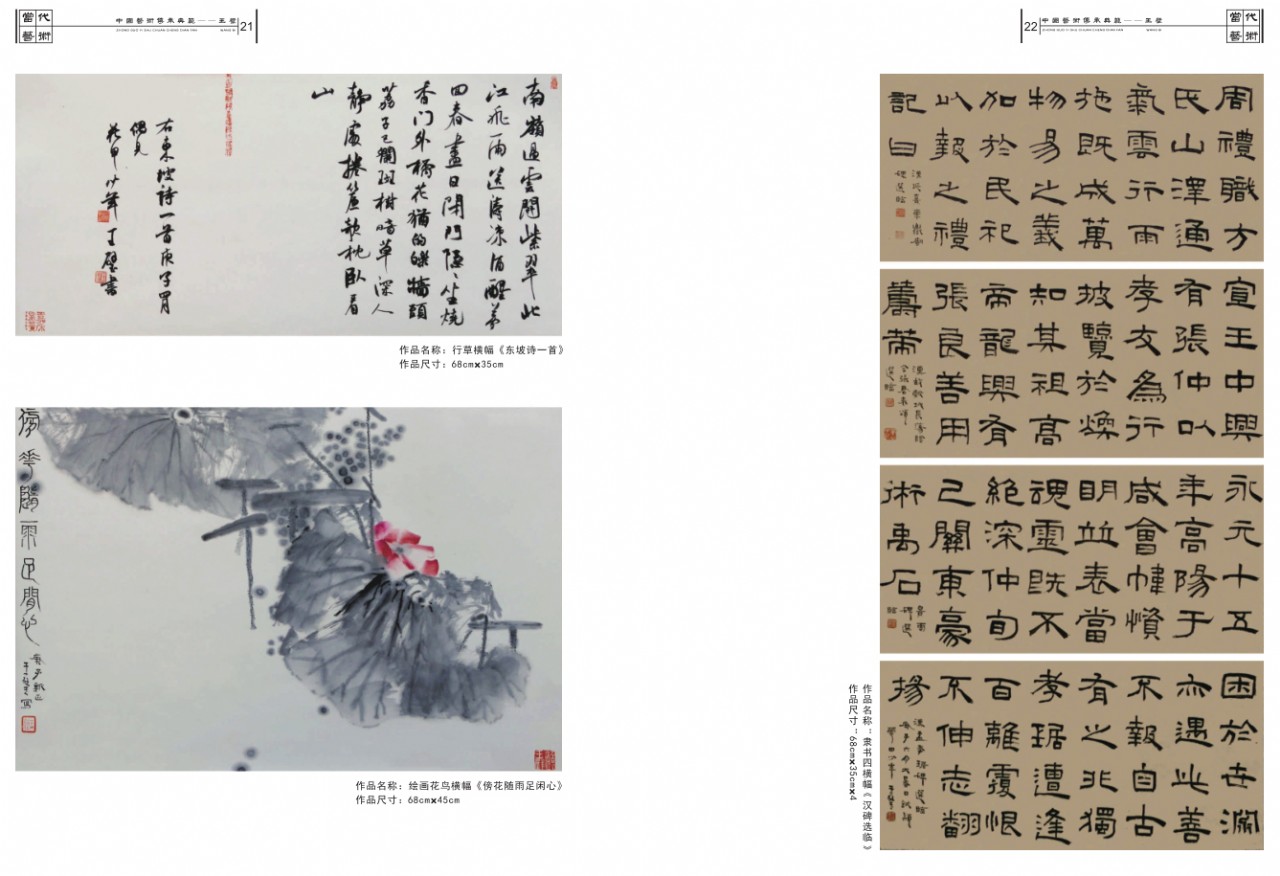 當代
藝術
中國藝術傳承典範——王璧
21
南嶺過雲開紫翠北
江飛雨送淒涼酒醒夢
回春盡日閉門隱几坐燒
香門外橘花猶的皪牆頭
荔子已斕斑樹暗草深人
靜處捲簾欹枕臥看
山
右東坡詩一首庚子
偶見
王璧書
作品名称:行草横幅《东坡诗一首》
作品尺寸:68cm×35cm
傍花隨雨足閒心
王璧寫
作品名称:绘画花鸟横幅《傍花随雨足闲心》
作品尺寸:68cm×45cm
22
中國藝術傳承典範——王璧
當代
藝術
周禮職方
氏山澤通
氣雲行雨
施既成萬
物易之義
加於民祀
以報之禮
記曰
宣王中興
有張仲以
孝友為行
披覽於煥
知其祖高
帝龍興有
張良善用
籌策
永元十五
年高陽于
咸會幃憤
明並表當
魂靈既不
絕深仲旬
己關東豪
術禹石
困於世溷
亦遇此善
不報自古
有之非獨
孝琚遭逢
百離覆恨
不伸志翻
揚
作品名称:隶书四横幅《汉碑选临》
作品尺寸:68cm×35cm×4